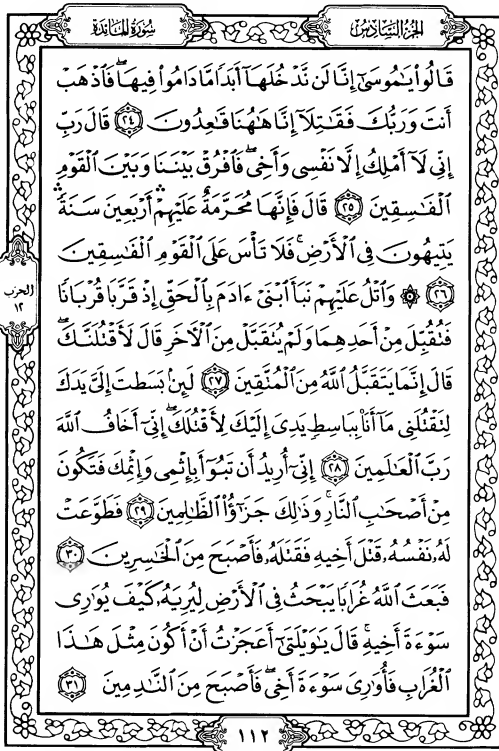 سُورَةُ المَائدة
الجُزءُ السَّادِسُ
قَالُوا۟ يَـٰمُوسَىٰٓ إِنَّا لَن نَّدْخُلَهَآ أَبَدًا مَّا دَامُوا۟ فِيهَا ۖ فَٱذْهَبْ
أَنتَ وَرَبُّكَ فَقَـٰتِلَآ إِنَّا هَـٰهُنَا قَـٰعِدُونَ ٢٤ قَالَ رَبِّ
إِنِّى لَآ أَمْلِكُ إِلَّا نَفْسِى وَأَخِى ۖ فَٱفْرُقْ بَيْنَنَا وَبَيْنَ ٱلْقَوْمِ
ٱلْفَـٰسِقِينَ ٢٥ قَالَ فَإِنَّهَا مُحَرَّمَةٌ عَلَيْهِمْ ۛ أَرْبَعِينَ سَنَةً ۛ
يَتِيهُونَ فِى ٱلْأَرْضِ ۚ فَلَا تَأْسَ عَلَى ٱلْقَوْمِ ٱلْفَـٰسِقِينَ
٢٦ ۞ وَٱتْلُ عَلَيْهِمْ نَبَأَ ٱبْنَىْ ءَادَمَ بِٱلْحَقِّ إِذْ قَرَّبَا قُرْبَانًا
فَتُقُبِّلَ مِنْ أَحَدِهِمَا وَلَمْ يُتَقَبَّلْ مِنَ ٱلْـَٔاخَرِ قَالَ لَأَقْتُلَنَّكَ ۖ
قَالَ إِنَّمَا يَتَقَبَّلُ ٱللَّهُ مِنَ ٱلْمُتَّقِينَ ٢٧ لَئِنۢ بَسَطتَ إِلَىَّ يَدَكَ
لِتَقْتُلَنِى مَآ أَنَا۠ بِبَاسِطٍ يَدِىَ إِلَيْكَ لِأَقْتُلَكَ ۖ إِنِّىٓ أَخَافُ ٱللَّهَ
رَبَّ ٱلْعَـٰلَمِينَ ٢٨ إِنِّىٓ أُرِيدُ أَن تَبُوٓأَ بِإِثْمِى وَإِثْمِكَ فَتَكُونَ
مِنْ أَصْحَـٰبِ ٱلنَّارِ ۚ وَذَٰلِكَ جَزَـٰٓؤُا۟ ٱلظَّـٰلِمِينَ ٢٩ فَطَوَّعَتْ
لَهُۥ نَفْسُهُۥ قَتْلَ أَخِيهِ فَقَتَلَهُۥ فَأَصْبَحَ مِنَ ٱلْخَـٰسِرِينَ ٣٠
فَبَعَثَ ٱللَّهُ غُرَابًا يَبْحَثُ فِى ٱلْأَرْضِ لِيُرِيَهُۥ كَيْفَ يُوَٰرِى
سَوْءَةَ أَخِيهِ ۚ قَالَ يَـٰوَيْلَتَىٰٓ أَعَجَزْتُ أَنْ أَكُونَ مِثْلَ هَـٰذَا
ٱلْغُرَابِ فَأُوَٰرِىَ سَوْءَةَ أَخِى ۖ فَأَصْبَحَ مِنَ ٱلنَّـٰدِمِينَ ٣١
الحزب
١٢
١١٢